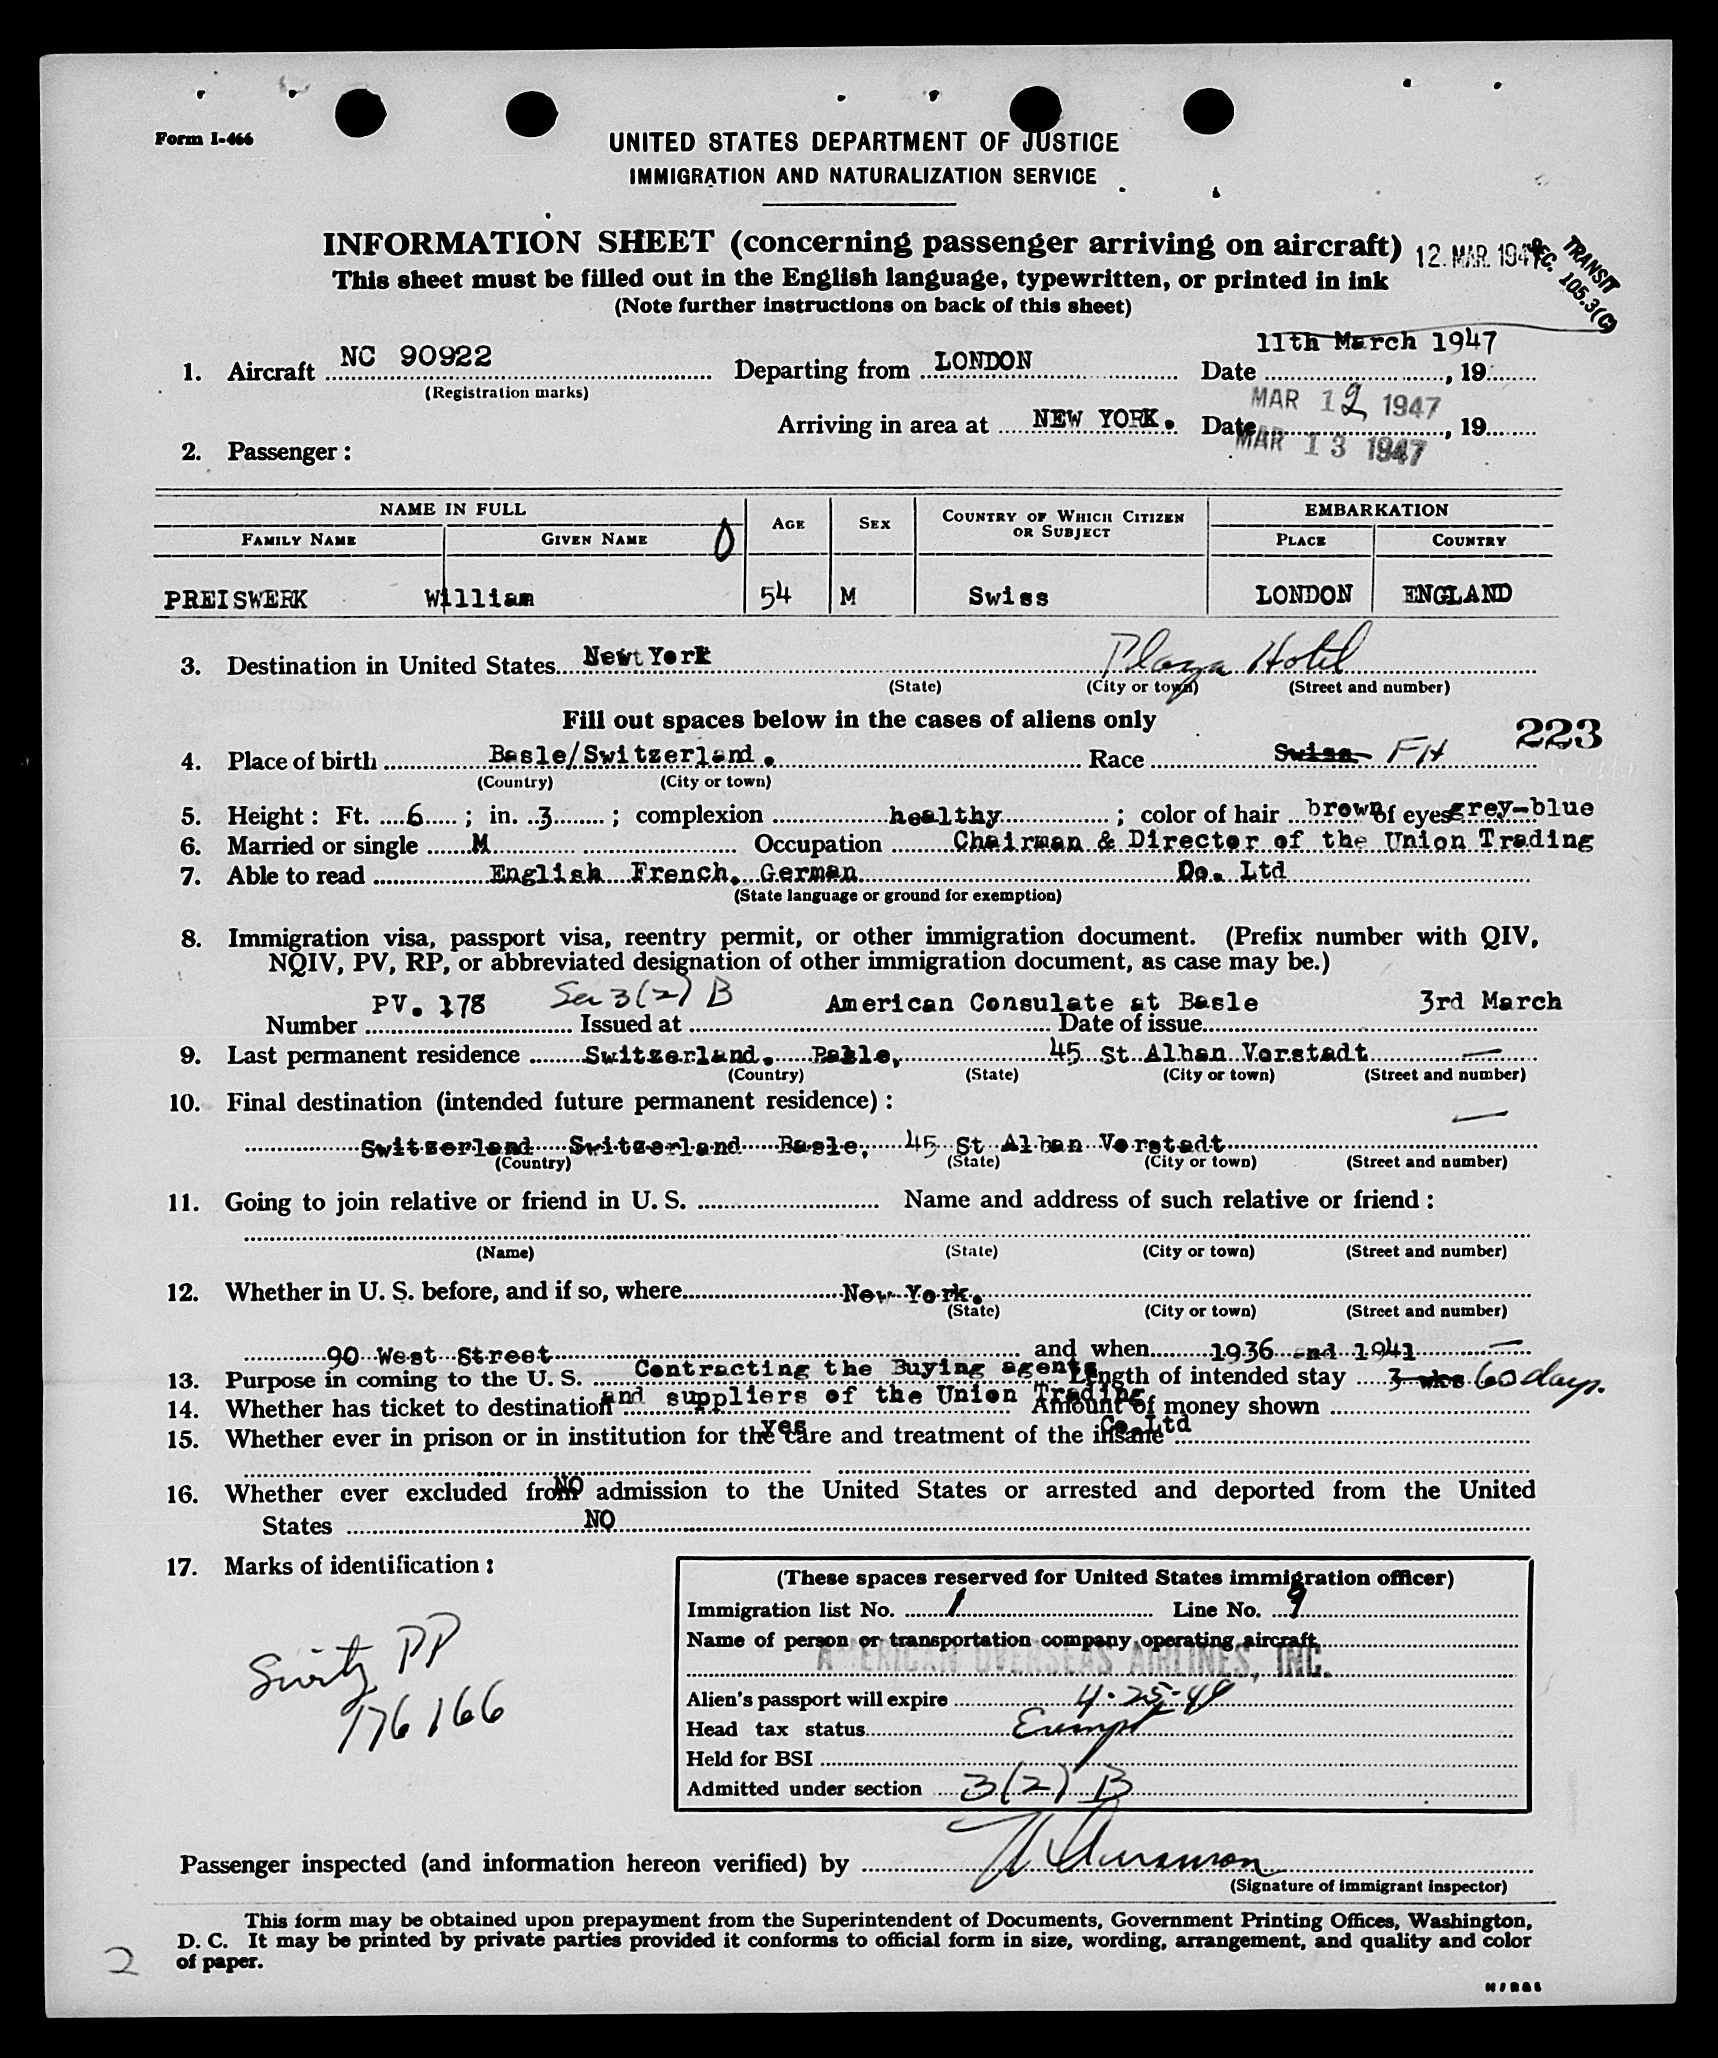 Form I-466
UNITED STATES DEPARTMENT OF JUSTICE
IMMIGRATION AND NATURALIZATION SERVICE
INFORMATION SHEET (concerning passenger arriving on aircraft)
12. MAR. 1947
TRANSIT
SEC. 105.3(C)
This sheet must be filled out in the English language, typewritten, or printed in ink
(Note further instructions on back of this sheet)
1. Aircraft NC 90922 Departing from LONDON Date 11th March 1947, 19
(Registration marks)
MAR 12 1947
Arriving in area at NEW YORK. Date, 19
MAR 13 1947
2. Passenger:
NAME IN FULL AGE SEX COUNTRY OF WHICH CITIZEN OR SUBJECT EMBARKATION
FAMILY NAME GIVEN NAME PLACE COUNTRY
PREISWERK William 54 M Swiss LONDON ENGLAND
3. Destination in United States New York Plaza Hotel
(State) (City or town) (Street and number)
Fill out spaces below in the cases of aliens only
223
4. Place of birth Basle/Switzerland. Race Swiss FH
(Country) (City or town)
5. Height: Ft. 6; in. 3; complexion healthy; color of hair brown of eyes grey-blue
6. Married or single M Occupation Chairman & Director of the Union Trading
7. Able to read English French, German Co. Ltd
(State language or ground for exemption)
8. Immigration visa, passport visa, reentry permit, or other immigration document. (Prefix number with QIV,
NQIV, PV, RP, or abbreviated designation of other immigration document, as case may be.)
Number PV. 178 Sec 3(2) B Issued at American Consulate at Basle Date of issue 3rd March
9. Last permanent residence Switzerland. Basle, 45 St Alban Vorstadt —
(Country) (State) (City or town) (Street and number)
10. Final destination (intended future permanent residence):
Switzerland Switzerland Basle, 45 St Alban Vorstadt
(Country) (State) (City or town) (Street and number)
11. Going to join relative or friend in U. S. Name and address of such relative or friend:
(Name) (State) (City or town) (Street and number)
12. Whether in U. S. before, and if so, where New York.
(State) (City or town) (Street and number)
90 West Street and when 1936 and 1941
13. Purpose in coming to the U. S. Contracting the Buying agents Length of intended stay 3 wks 60 days.
14. Whether has ticket to destination and suppliers of the Union Trading Amount of money shown
15. Whether ever in prison or in institution for the care and treatment of the insane yes Co.Ltd
NO
16. Whether ever excluded from admission to the United States or arrested and deported from the United
States NO
17. Marks of identification:
Switz PP
176166
(These spaces reserved for United States immigration officer)
Immigration list No. 1 Line No. 9
Name of person or transportation company operating aircraft
AMERICAN OVERSEAS AIRLINES, INC.
Alien's passport will expire 4-25-49
Head tax status Exempt
Held for BSI
Admitted under section 3(2) B
Passenger inspected (and information hereon verified) by
(Signature of immigrant inspector)
This form may be obtained upon prepayment from the Superintendent of Documents, Government Printing Offices, Washington,
D. C. It may be printed by private parties provided it conforms to official form in size, wording, arrangement, and quality and color
of paper.
2